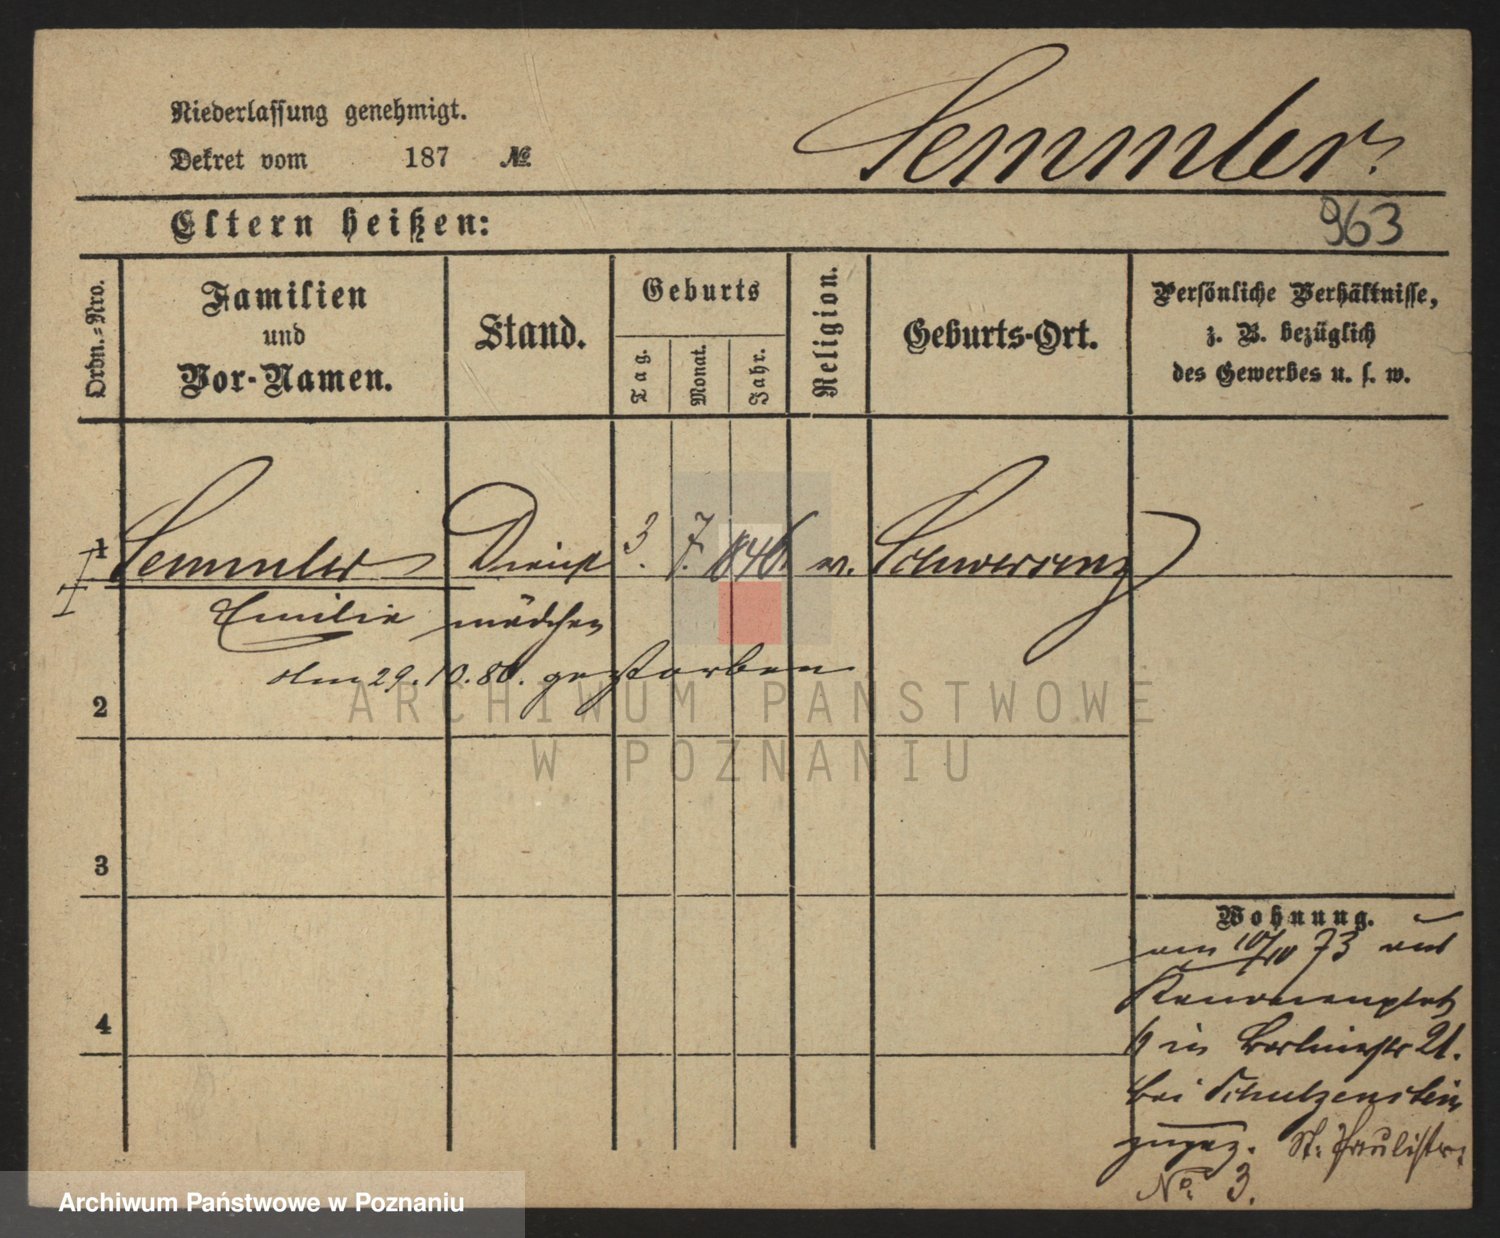 Niederlassung genehmigt.
Dekret vom 187 №
Semmler.
Eltern heißen:
963
Ordn.-Nro.
Familien
und
Vor-Namen.
Stand.
Geburts
Tag.
Monat.
Jahr.
Religion.
Geburts-Ort.
Persönliche Verhältnisse,
z. B. bezüglich
des Gewerbes u. s. w.
1 Semmler Dienst 3. 7. 1846 Schwersenz
Emilie mädchen
am 29.10.80. gestorben
2
3
4
Wohnung.
am 10/10 73 aus
Kanonenplatz
6 in Berlinerstr 21.
bei Schulzenstein
zugez. St: Paulistr:
No. 3.
ARCHIWUM PAŃSTWOWE
W POZNANIU
Archiwum Państwowe w Poznaniu